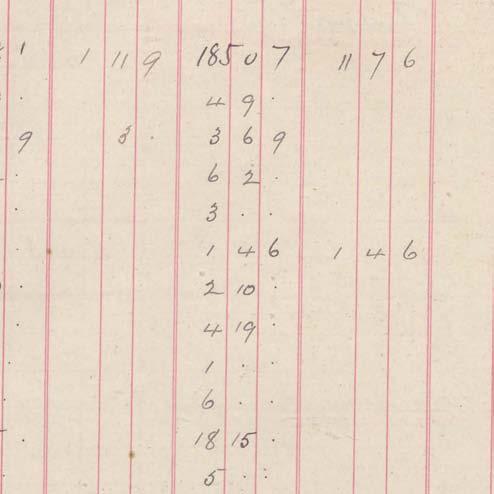 1 1 11 9 185 0 7 11 7 6
. 4 9 .
9 3 . 3 6 9
. 6 2 .
. 3 . .
1 4 6 1 4 6
. 2 10 .
. 4 19 .
. 1 . .
. 6 . .
. 18 15 .
. 5 . .